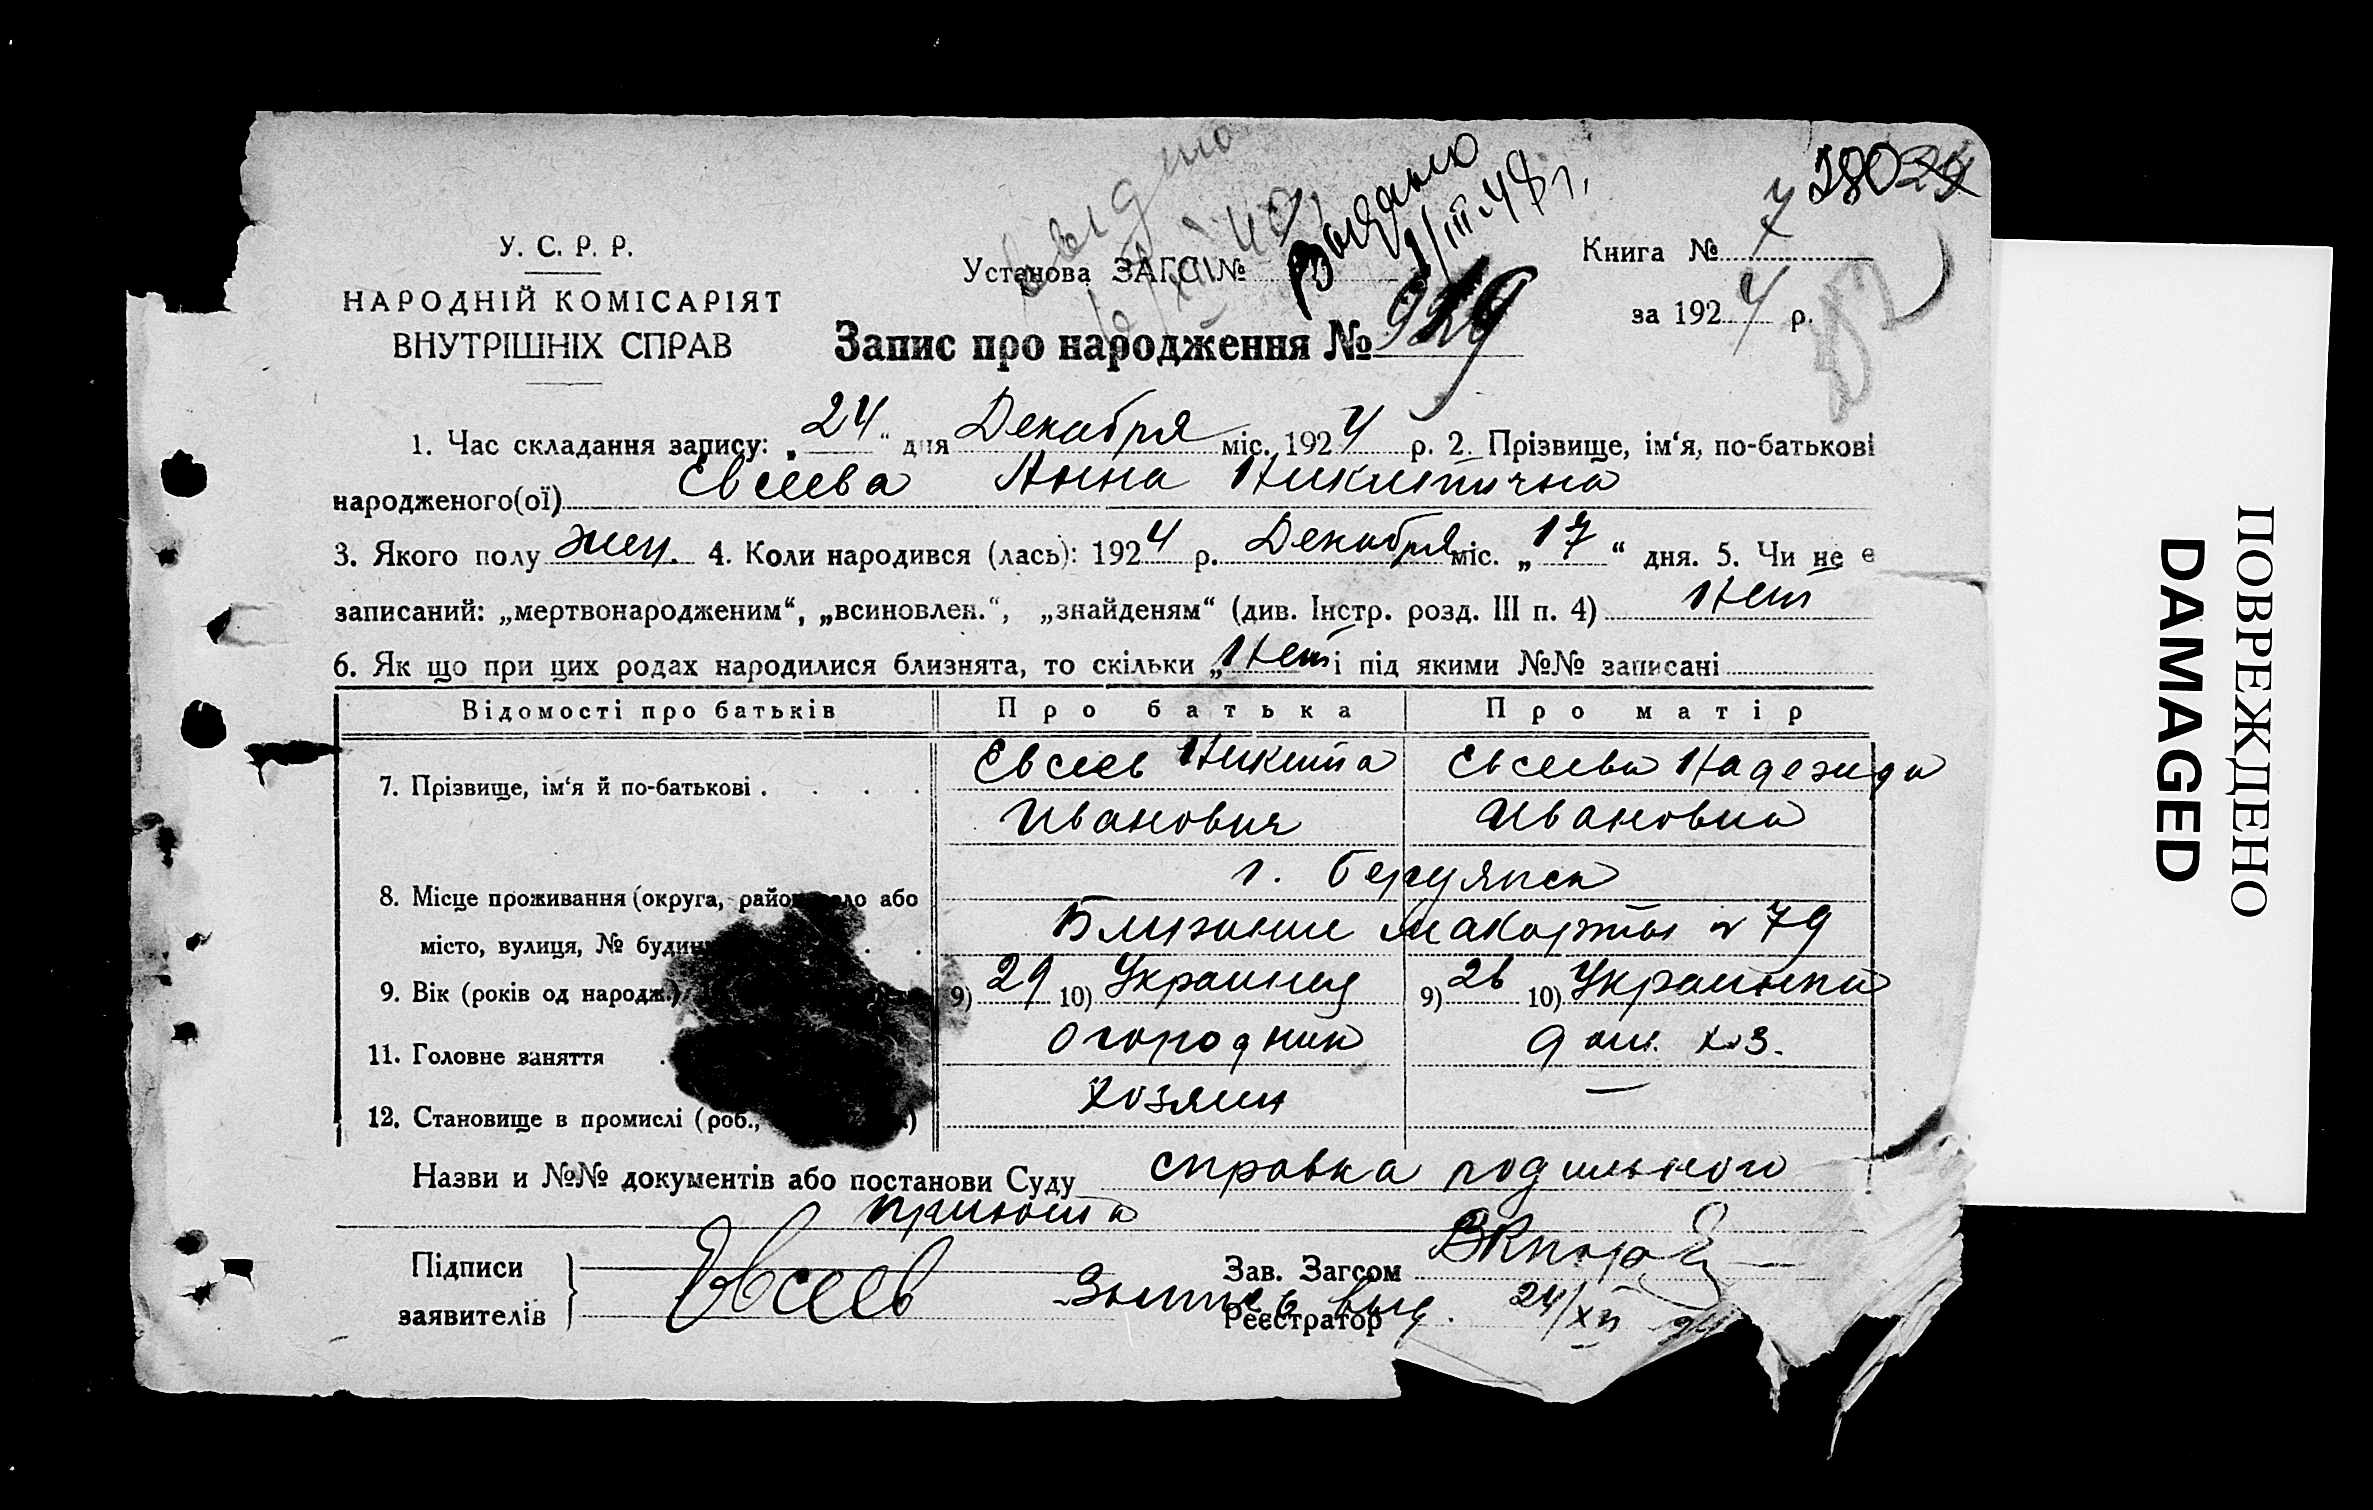 280 24
У. С. Р. Р.
НАРОДНІЙ КОМІСАРІЯТ
ВНУТРІШНІХ СПРАВ
выдано
Выдано
1/III-48 г.
Установа ЗАГСІ №
Книга № 7
за 1924 р.
Запис про народження № 929
1. Час складання запису: „24“ дня Декабря міс. 1924 р. 2. Прізвище, ім‘я, по-батькові
народженого(ої) Евсеева Анна Никитична
3. Якого полу жен. 4. Коли народився (лась): 1924 р. Декабря міс. „17“ дня. 5. Чи не є
записаний: „мертвонародженим“, „всиновлен.“, „знайденям“ (див. Інстр. розд. III п. 4) Нет
6. Як що при цих родах народилися близнята, то скільки „Нет і під якими №№ записані
Відомості про батьків Про батька Про матір
7. Прізвище, ім‘я й по-батькові . . . . Евсеев Никита Евсеева Надежда
Иванович Ивановна
г. Бердянск
8. Місце проживання (округа, район або
місто, вулиця, № Ближние Макорты № 79
9. Вік (років од народж.) 9) 29 10) Украинец 9) 26 10) Украинка
11. Головне заняття огородник дом. хоз.
12. Становище в промислі (роб., хозяин —
Назви и №№ документів або постанови Суду справка родильного
приюта
Підписи
заявителів
Евсеев
Зав. Загсом
Реєстратор
Выпись выд. 24/XII 24
ПОВРЕЖДЕНО
DAMAGED